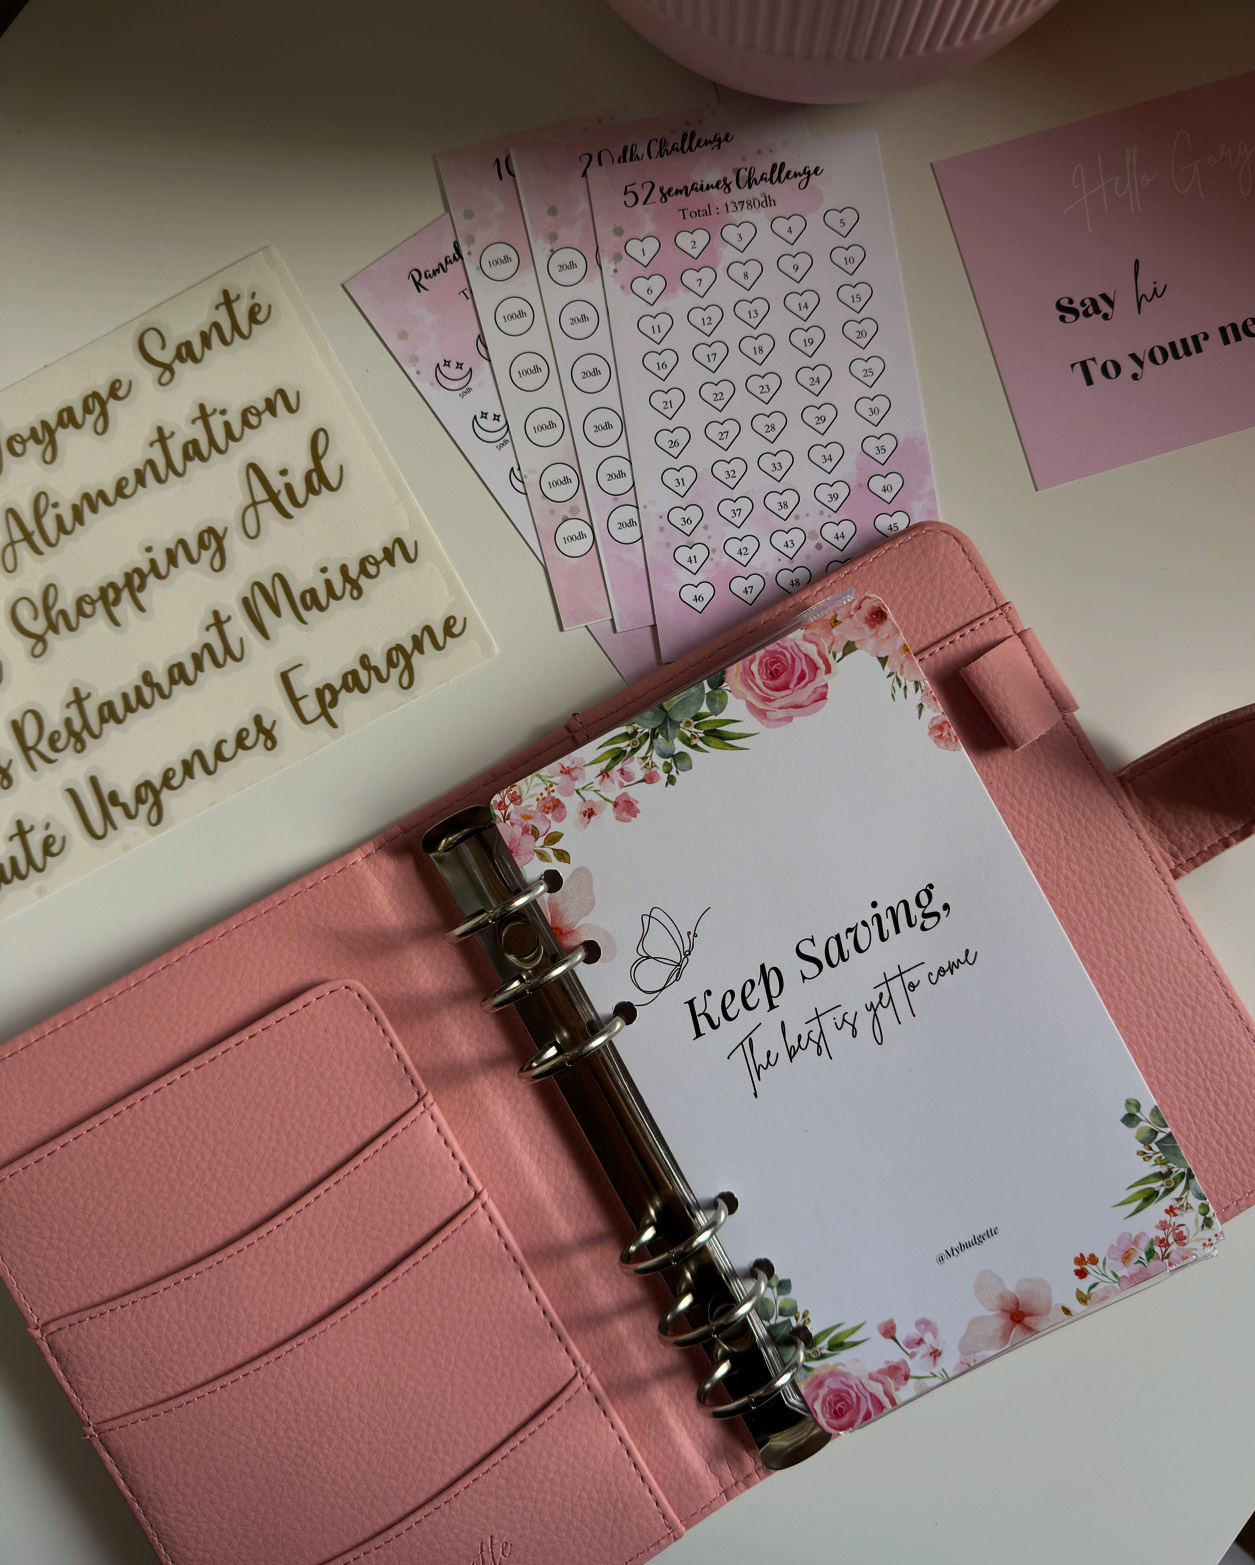 Santé
Alimentation
Shopping Aid
Restaurant Maison
Urgences Epargne
100dh
100dh
100dh
100dh
100dh
100dh
20dh Challenge
20dh
20dh
20dh
20dh
20dh
20dh
50dh
50dh
52 semaines Challenge
Total : 13780dh
1 2 3 4 5
6 7 8 9 10
11 12 13 14 15
16 17 18 19 20
21 22 23 24 25
26 27 28 29 30
31 32 33 34 35
36 37 38 39 40
41 42 43 44 45
46 47 48
Hello
Say hi
To your
Keep Saving,
The best is yet to come
@Mybudgette